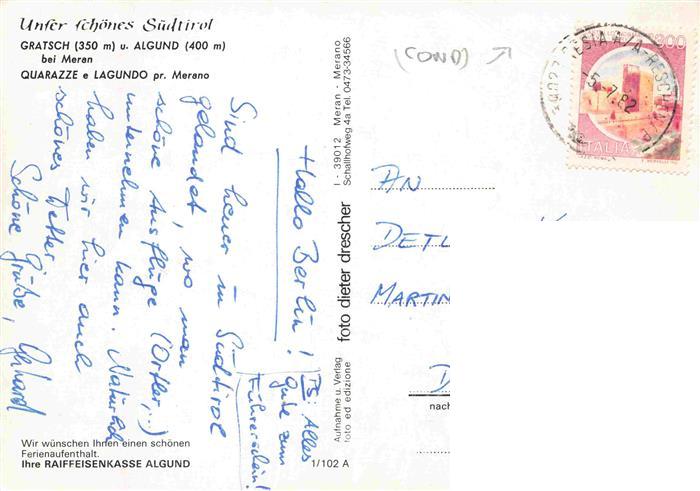 Unser schönes Südtirol
GRATSCH (350 m) u. ALGUND (400 m)
bei Meran
QUARAZZE e LAGUNDO pr. Merano
Hallo Berlin!
Sind heuer in Südtirol
gelandet, wo man
schöne Ausflüge (Ortler,..)
unternehmen kann. Natürlich
haben wir hier auch
schönes Wetter.
Schöne Grüße, Gerhard
PS: Alles
Gute zum
Führerschein!
Wir wünschen Ihnen einen schönen
Ferienaufenthalt.
Ihre RAIFFEISENKASSE ALGUND
1/102 A
Aufnahme u. Verlag
foto ed edizione
foto dieter drescher
I - 39012 Meran - Merano
Schallhofweg 4a Tel. 0473-34566
(COND)
5.7.82
ITALIA
AN
DETL
MARTIN
D
nach